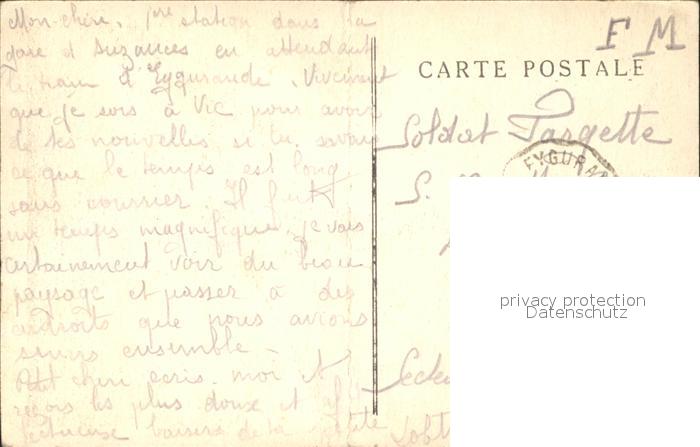 Mon chéri, 1ère station dans la
gare d' en attendant
le train d'Eygurande. Vivement
que je sois à Vic pour avoir
de tes nouvelles si tu savais
ce que le temps est long
sans courrier. Il fait
un temps magnifique, je vais
certainement voir du beau
paysage et passer à des
endroits que nous avions
ensemble -
Petit chéri écris-moi et
reçois les plus doux et affectueux
baisers de ta petite
F M
CARTE POSTALE
Soldat
S.
EYGURAN
privacy protection
Datenschutz